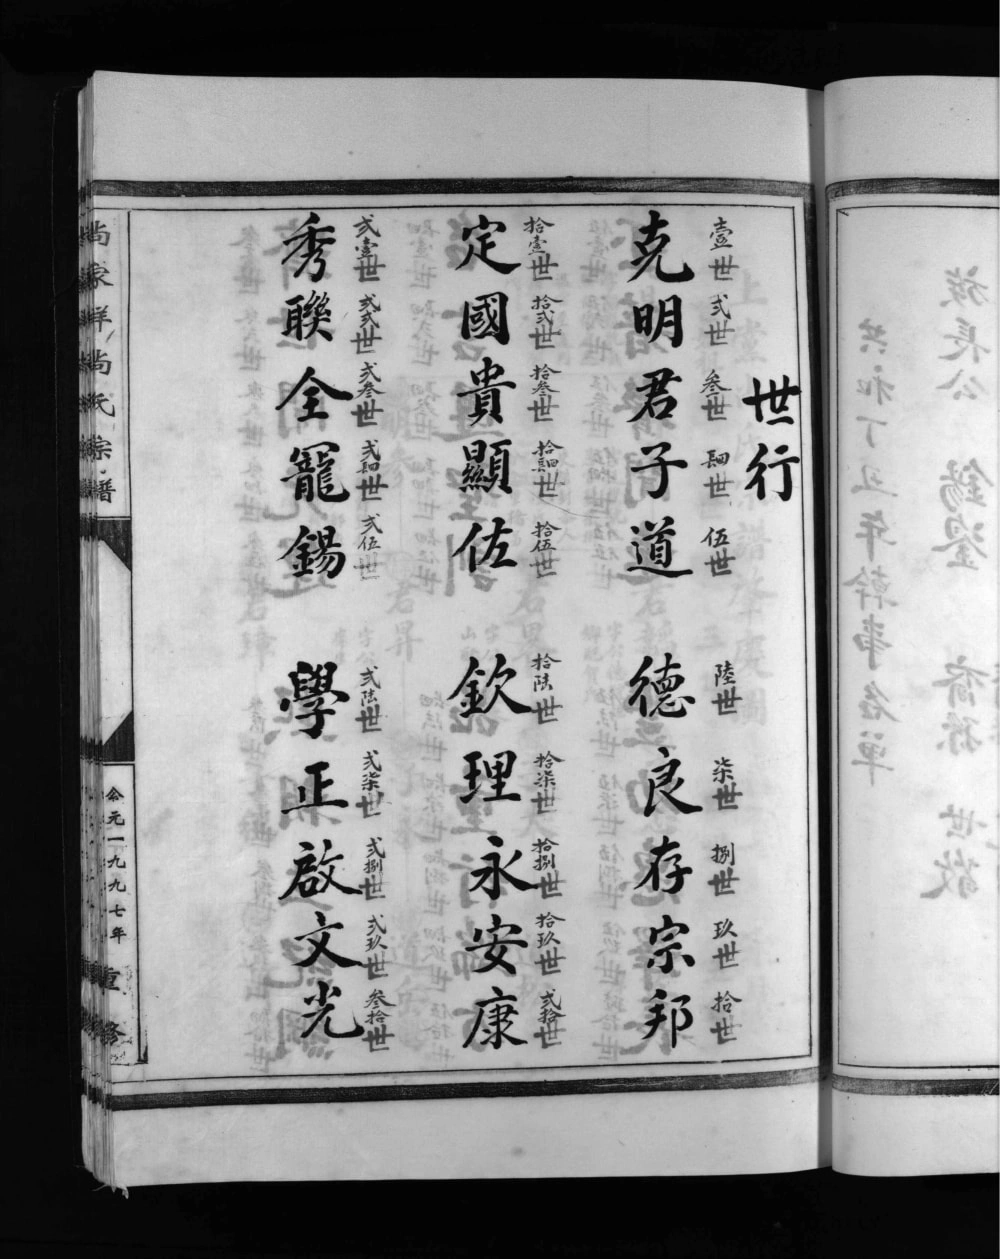 世行
壹世 貳世 叁世 肆世 伍世 陸世 柒世 捌世 玖世 拾世
克明君子道 德良存宗邦
拾壹世 拾弍世 拾叁世 拾肆世 拾伍世 拾陆世 拾柒世 拾捌世 拾玖世 弍拾世
定國貴顯佐 欽理永安康
弍壹世 弍弍世 弍叁世 弍肆世 弍伍世 弍陆世 弍柒世 弍捌世 弍玖世 叁拾世
秀聯全寵錫 學正啟文光
尚家祥尚氏宗譜
公元一九九七年 重修